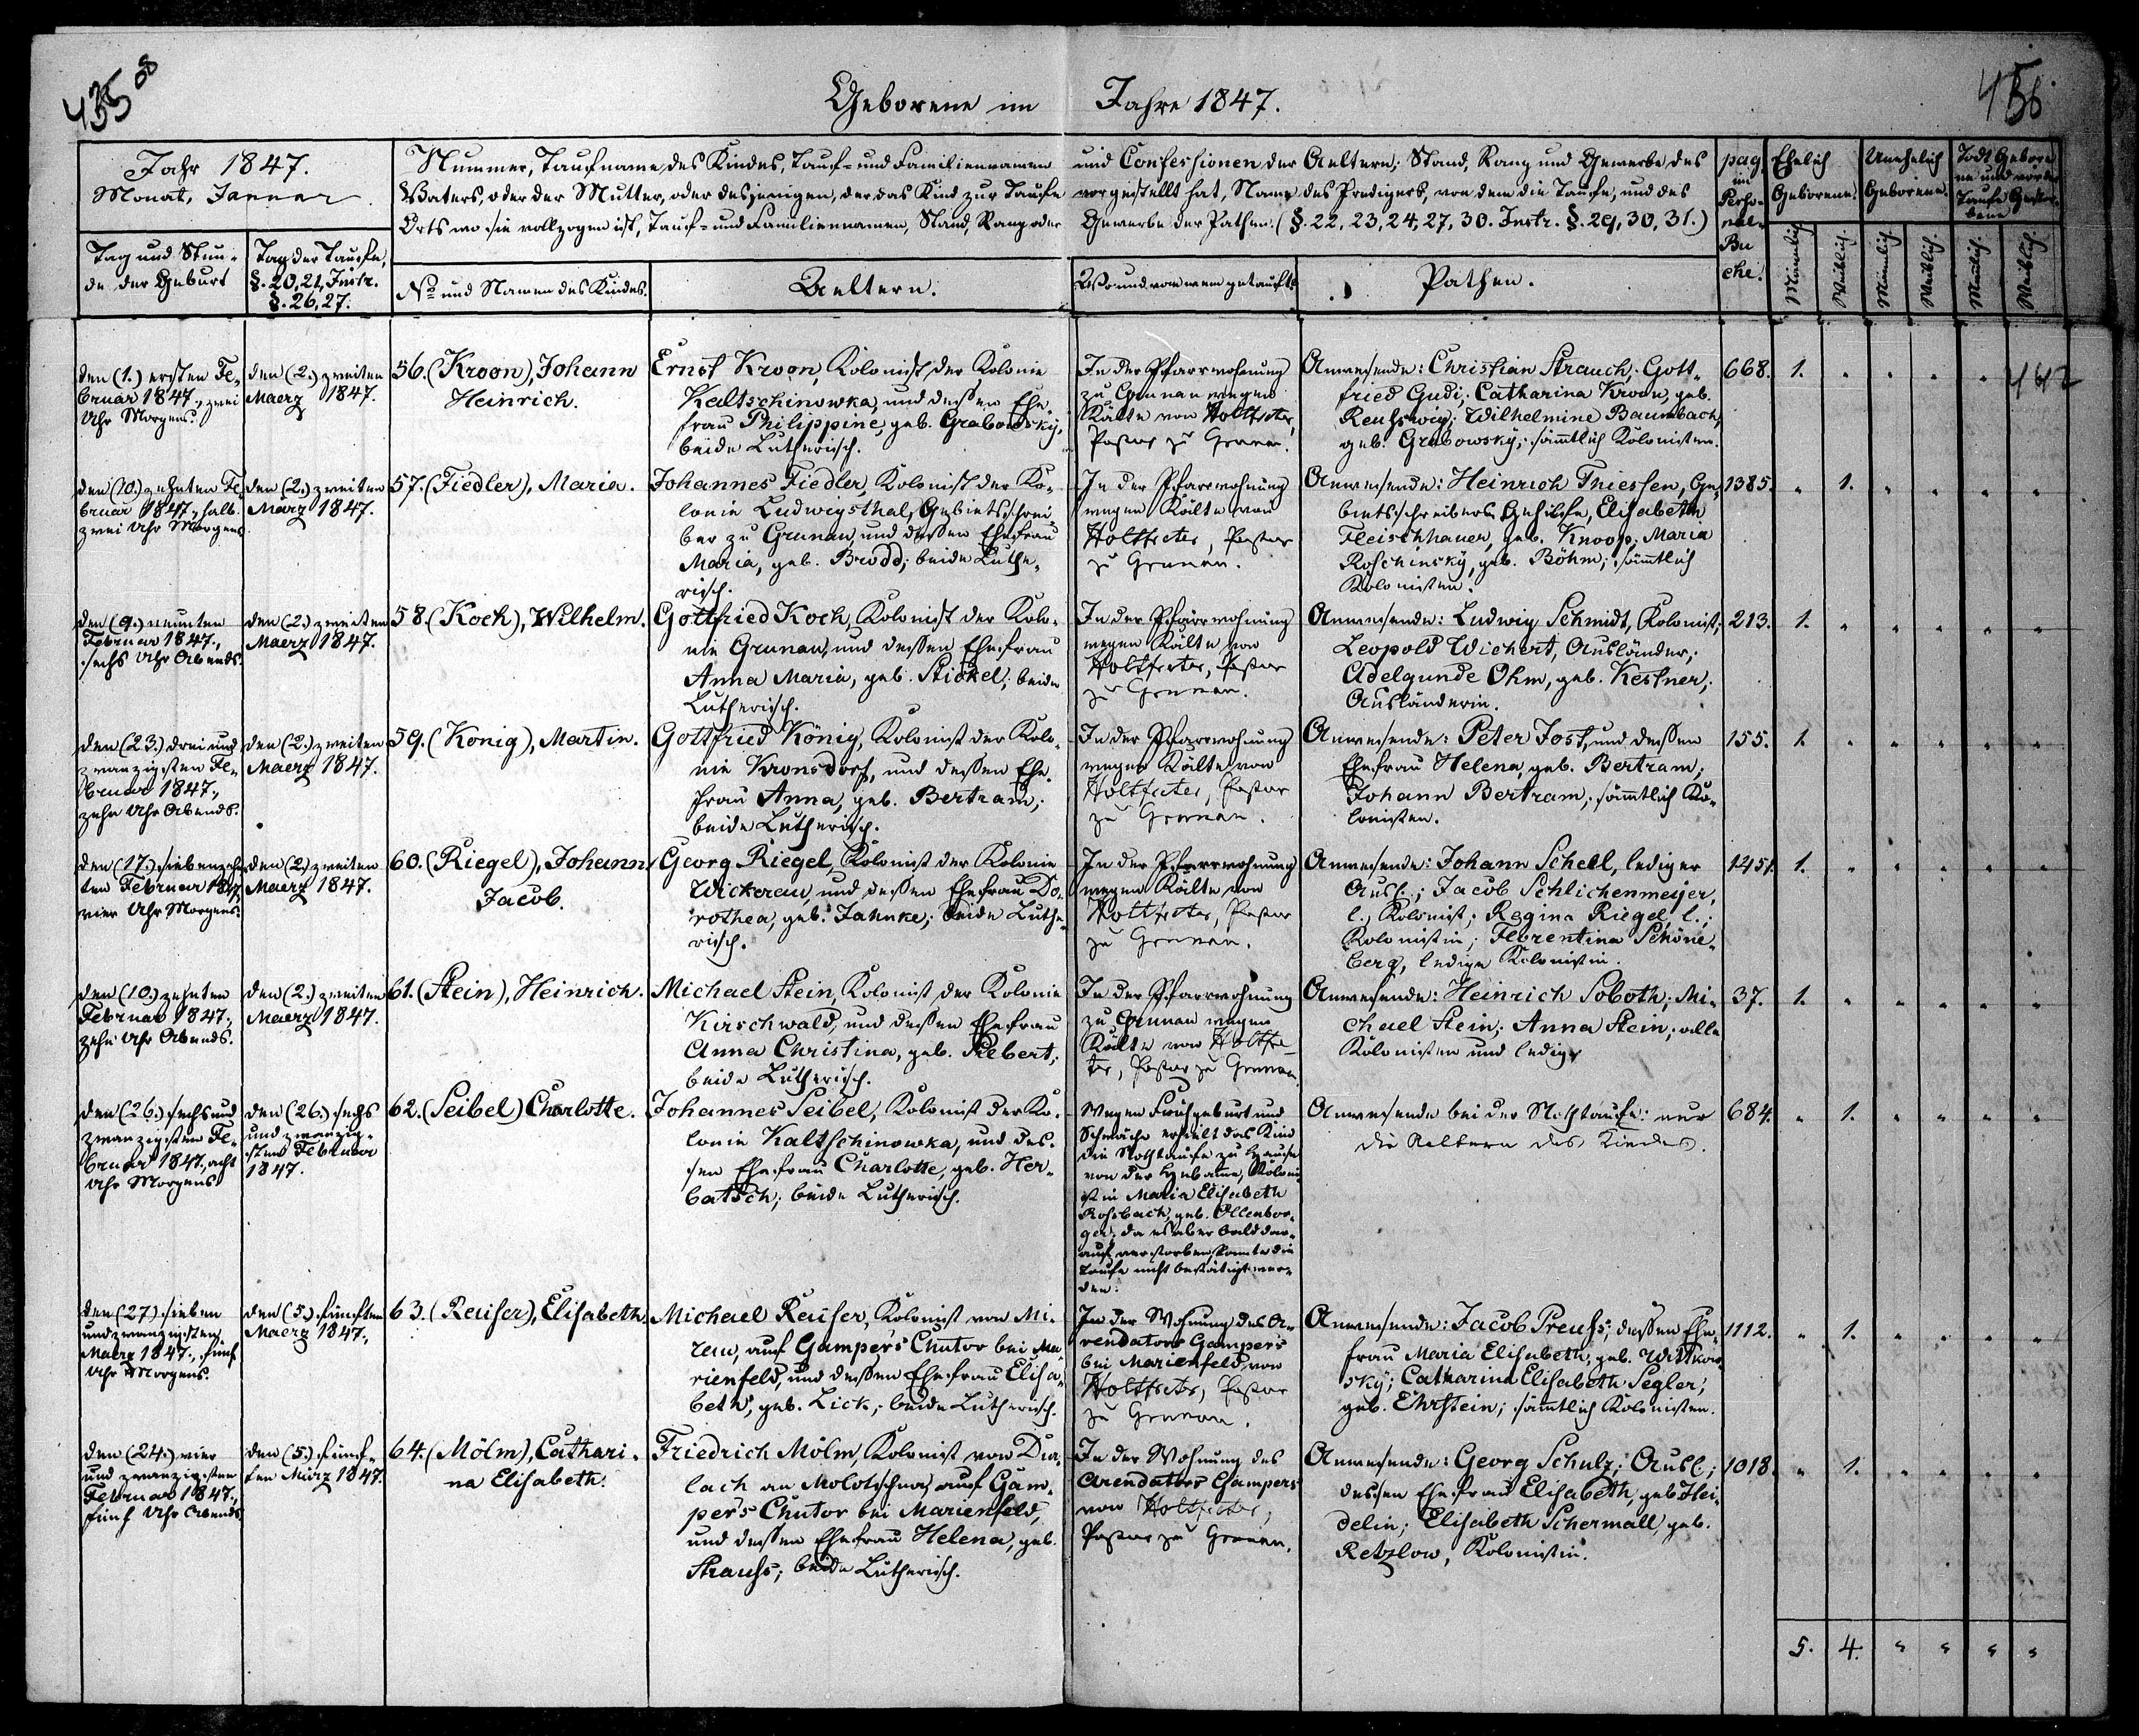 435
08
456
Geborene im Jahre 1847.
Jahr 1847.
Monat, Januar
Tag und Stun-
de der Geburt
Tag der Taufe,
§. 20, 21, Instr.
§. 26, 27.
Nummer, Taufname des Kindes, Tauf- und Familiennamen und Confessionen der Aeltern; Stand, Rang und Gewerbe des
Vaters, oder der Mutter, oder desjenigen, der das Kind zur Taufe vorgestellt hat, Name des Predigers, von dem die Taufe, und des
Orts wo sie vollzogen ist, Tauf- und Familiennamen, Stand, Rang oder Gewerbe der Pathen. (§. 22, 23, 24, 27, 30. Instr. §. 29, 30, 31.)
No und Namen des Kindes.
Aeltern.
Wo und von wem getauft.
Pathen.
pag.
im
Perso-
nal-
Bu
che.
Ehelich
Geborene.
Unehelich
Geborene.
Todt Gebore
ne und vor der
Taufe Gestor-
bene
Männlich.
Weiblich.
Männlich.
Weiblich.
Männlich.
Weiblich.
den (1.) ersten Fe-
bruar 1847., zwei
Uhr Morgens.
den (2.) zweiten
Maerz 1847.
56. (Kroon), Johann
Heinrich.
Ernst Kroon, Kolonist der Kolonie
Kaltschinowka, und dessen Ehe-
frau Philippine, geb. Grabowsky,
beide Lutherisch.
In der Pfarrwohnung
zu Grunau wegen
Kälte von Holtfreter,
Pastor zu Grunau.
Anwesende: Christian Strauch; Gott-
fried Gudi; Catharina Kroon, geb.
Reuswig; Wilhelmine Baumbach,
geb. Grabowsky; sämtlich Kolonisten.
668.
1.
442
den (10.) zehnten Fe-
bruar 1847., halb
zwei Uhr Morgens.
den (2.) zweiten
März 1847.
57. (Fiedler), Maria.
Johannes Fiedler, Kolonist der Ko-
lonie Ludwigsthal, Gebietsschrei-
ber zu Grunau, und dessen Ehefrau
Maria, geb. Brodd; beide Luthe-
risch.
In der Pfarrwohnung
wegen Kälte von
Holtfreter, Pastor
zu Grunau.
Anwesende: Heinrich Thiessen, Ge-
bietsschreibers Gehilfe, Elisabeth
Fleischhauer, geb. Knoop; Maria
Roschinsky, geb. Böhm; sämtlich
Kolonisten.
1385.
1.
den (9.) neunten
Februar 1847.,
sechs Uhr Abends.
den (2.) zweiten
Maerz 1847.
58. (Koch), Wilhelm.
Gottfried Koch, Kolonist der Kolo-
nie Grunau, und dessen Ehefrau
Anna Maria, geb. Stickel; beide
Lutherisch.
In der Pfarrwohnung
wegen Kälte von
Holtfreter, Pastor
zu Grunau.
Anwesende: Ludwig Schmidt, Kolonist;
Leopold Wichert, Ausländer;
Adelgunde Ohm, geb. Kestner;
Ausländerin.
213.
1.
den (23.) drei und
zwanzigsten Fe-
bruar 1847.,
zehn Uhr Abends.
den (2.) zweiten
Maerz 1847.
59. (König), Martin.
Gottfried König, Kolonist der Kolo-
nie Kronsdorf, und dessen Ehe-
frau Anna, geb. Bertram;
beide Lutherisch.
In der Pfarrwohnung
wegen Kälte von
Holtfreter, Pastor
zu Grunau.
Anwesende: Peter Jost, und dessen
Ehefrau Helena, geb. Bertram;
Johann Bertram; sämtlich Ko-
lonisten.
155.
1.
den (17.) siebenzehn-
ten Februar 1847.,
vier Uhr Morgens.
den (2.) zweiten
Maerz 1847.
60. (Riegel), Johann
Jacob.
Georg Riegel, Kolonist der Kolonie
Wickerau, und dessen Ehefrau Do-
rothea, geb. Jahnke; beide Luthe-
risch.
In der Pfarrwohnung
wegen Kälte von
Holtfreter, Pastor
zu Grunau.
Anwesende: Johann Schell, lediger
Ausl.; Jacob Schlichenmeijer,
l., Kolonist; Regina Riegel, l.;
Kolonistin; Florentina Schöne-
berg, ledige Kolonistin.
1451.
1.
den (10.) zehnten
Februar 1847.,
zehn Uhr Abends.
den (2.) zweiten
Maerz 1847.
61. (Stein), Heinrich.
Michael Stein, Kolonist der Kolonie
Kirschwald, und dessen Ehefrau
Anna Christina, geb. Siebert;
beide Lutherisch.
In der Pfarrwohnung
zu Grunau wegen
Kälte von Holtfre-
ter, Pastor zu Grunau.
Anwesende: Heinrich Soboth; Mi-
chael Stein; Anna Stein; alle
Kolonisten und ledig.
37.
1.
den (26.) sechs und
zwanzigsten Fe-
bruar 1847., acht
Uhr Morgens.
den (26.) sechs
und zwanzig-
sten Februar
1847.
62. (Seibel) Charlotte.
Johannes Seibel, Kolonist der Ko-
lonie Kaltschinowka, und des-
sen Ehefrau Charlotte, geb. Her-
batsch; beide Lutherisch.
Wegen Frühgeburt und
Schwäche erhielt das Kind
die Nothtaufe zu Hause
von der Hebamme, Koloni-
stin Maria Elisabeth
Rohrbach, geb. Ellenber-
ger; da es aber bald dar-
auf verstorben, konnte die
Taufe nicht bestätigt wer-
den.
Anwesende bei der Nothtaufe: nur
die Aeltern des Kindes.
684.
1.
den (27.) sieben
und zwanzigsten
Maerz 1847., fünf
Uhr Morgens.
den (5.) fünften
Maerz 1847.,
63. (Reuser), Elisabeth.
Michael Reuser, Kolonist von Mi-
rau, auf Gamper's Chutor bei Ma-
rienfeld, und dessen Ehefrau Elisa-
beth, geb. Lick; beide Lutherisch.
In der Wohnung des A-
rendators Gamper's
bei Marienfeld, von
Holtfreter, Pastor
zu Grunau.
Anwesende: Jacob Preuss; dessen Ehe-
frau Maria Elisabeth, geb. Wittkow-
sky; Catharina Elisabeth Segler,
geb. Ehrstein; sämtlich Kolonisten.
1112.
1.
den (24.) vier
und zwanzigsten
Februar 1847.,
fünf Uhr Abends.
den (5.) fünf-
ten März 1847.
64. (Mölm), Cathari-
na Elisabeth.
Friedrich Mölm, Kolonist von Dur-
lach an Molotschna, auf Gam-
per's Chutor bei Marienfeld,
und dessen Ehefrau Helena, geb.
Strauss; beide Lutherisch.
In der Wohnung des
Arendators Gampers
von Holtfreter,
Pastor zu Grunau.
Anwesende: Georg Schulz; Ausl.;
dessen Ehefrau Elisabeth, geb. Hei-
delin; Elisabeth Schermall, geb.
Retzlow, Kolonistin.
1018.
1.
5. 4.